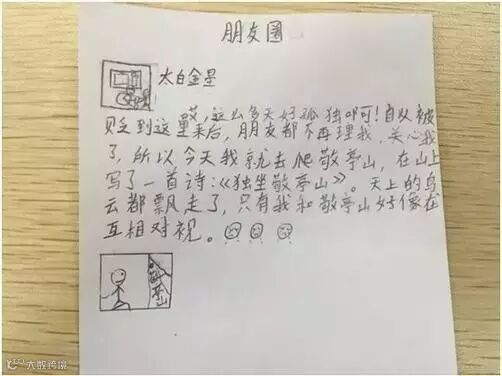 朋友圈
太白金星
哎,这么多天好孤独哪可!自从被
贬到这里来后,朋友都不再理我,关心我
了,所以今天我就去爬敬亭山,在山上
写了一首诗:《独坐敬亭山》。天上的鸟
云都飘走了,只有我和敬亭山好像在
互相对视。
敬亭山
大数跨境